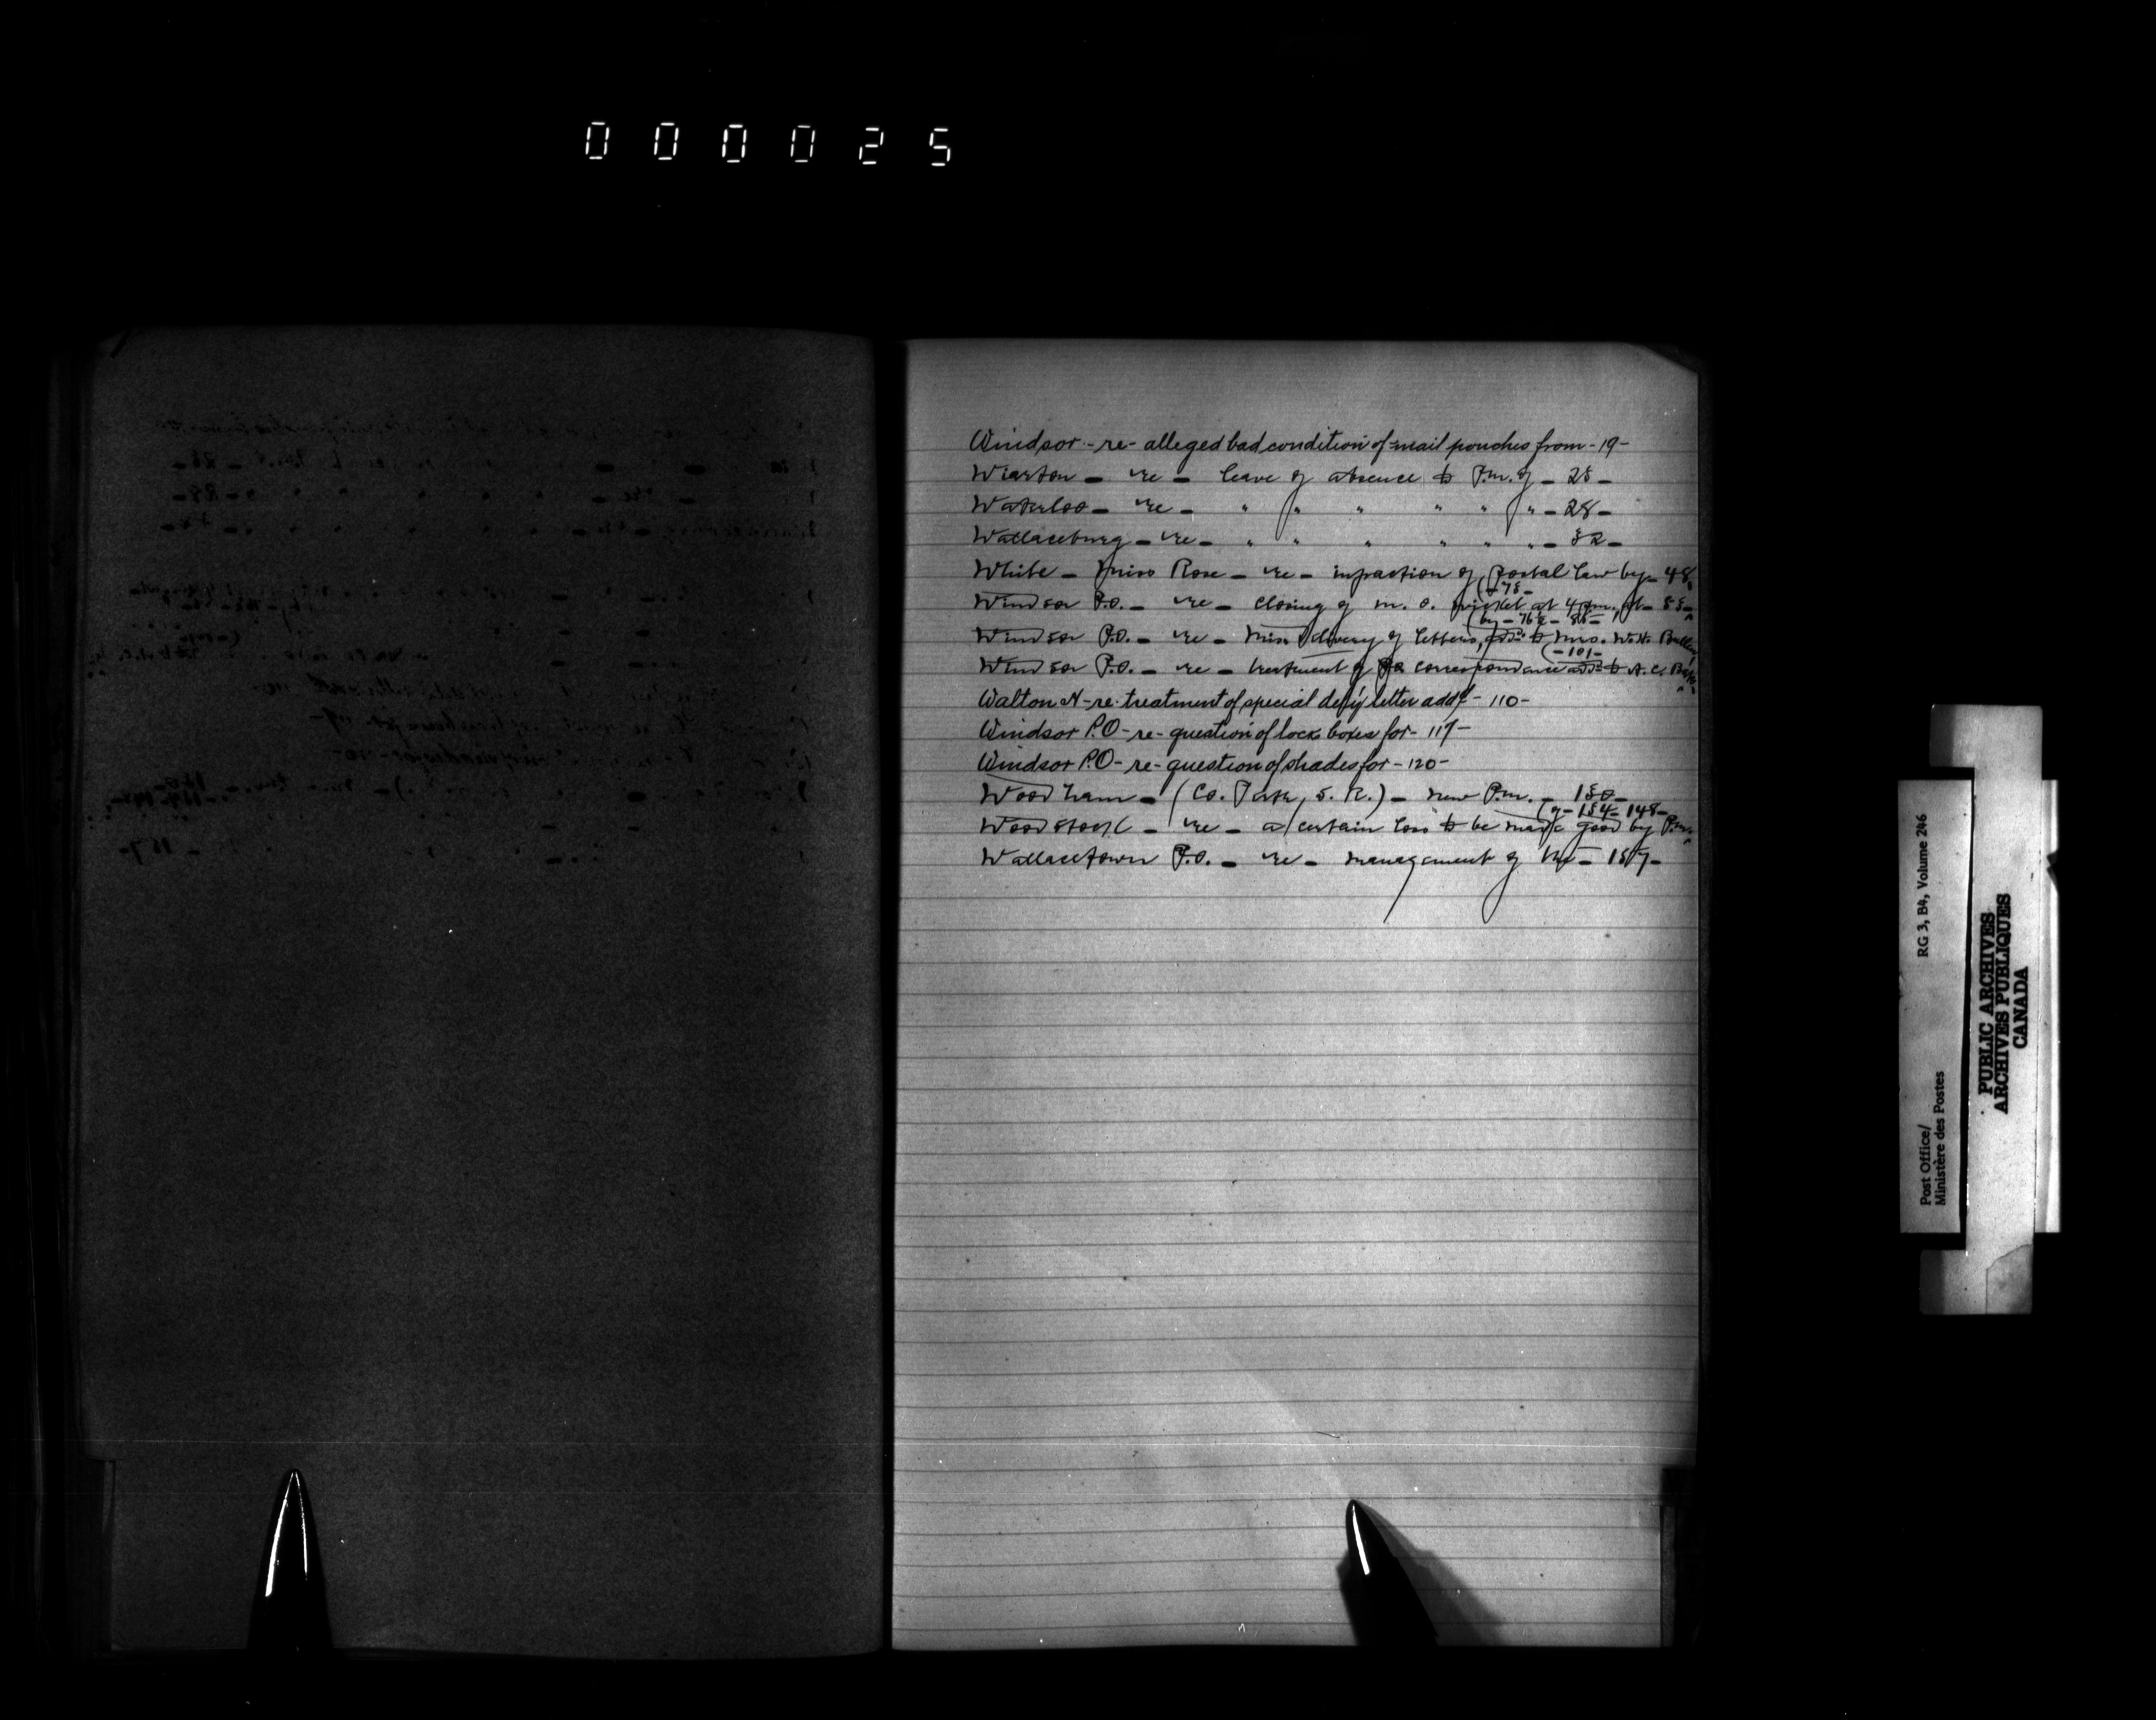 000025
Windsor - re - alleged bad condition of mail pouches from - 19 -
Wiarton - re - leave of absence to P.m. of - 25 -
Waterloo - re - " " " " " " - 28 -
Wallaceburg - re - " " " " " " - 32 -
White - Miss Rose - re - infraction of postal law by - 48
(- 75 -
Windsor P.O. - re - closing of m. o. wicket at 4 p.m. at - 55 -
(by - 76½ - 85 -
Windsor P.O. - re - mis delivery of letters, add: to Mrs. W.H.
(- 101 -
Windsor P.O. - re - treatment of correspondence add: to A. C.
Walton N - re - treatment of special del'y letter add'd - 110 -
Windsor P.O - re - question of lock boxes for - 117 -
Windsor P.O - re - question of shades for - 120 -
Woodham - (Co. Perth, S. R.) - new P.m. - 150 -
(of - 154 - 148 -
Woodstock - re - a certain loss to be made good by P.m.
Wallacetown P.O. - re - management of the - 157 -
Post Office/
Ministère des Postes
RG 3, B4, Volume 246
PUBLIC ARCHIVES
ARCHIVES PUBLIQUES
CANADA